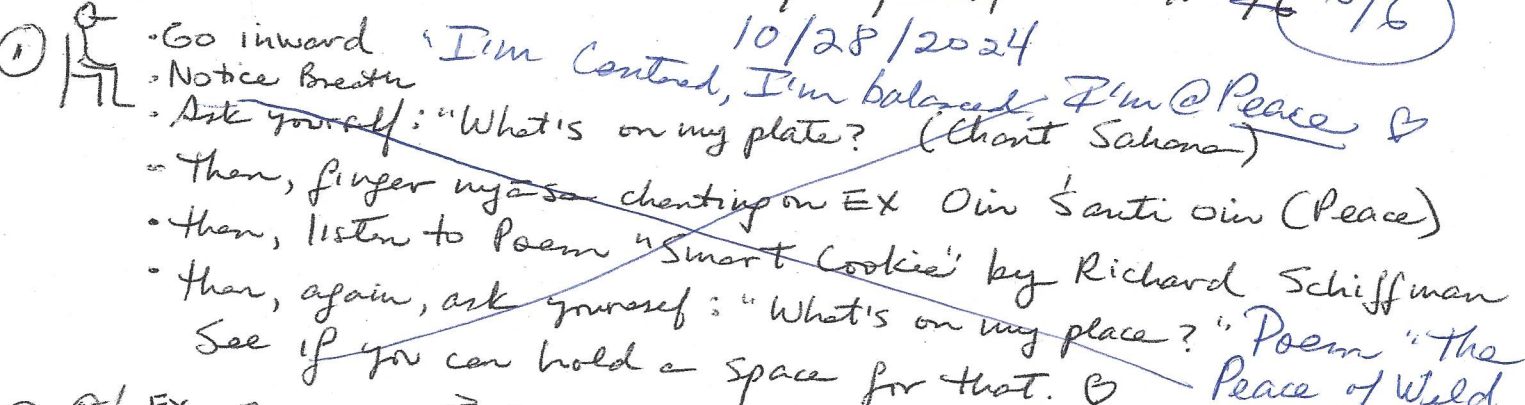 1
· Go inward "I'm Centered, I'm balanced, I'm @ Peace ♡
10/28/2024
· Notice Breath
· Ask yourself: "What's on my plate? (Chant Sahana)
- Then, finger nyāsa chanting on EX Oṁ Śanti oṁ (Peace)
· then, listen to Poem "Smart Cookie" by Richard Schiffman
· then, again, ask yourself: "What's on my place?" Poem "The
See if you can hold a space for that. ♡ Peace of Wild
EX